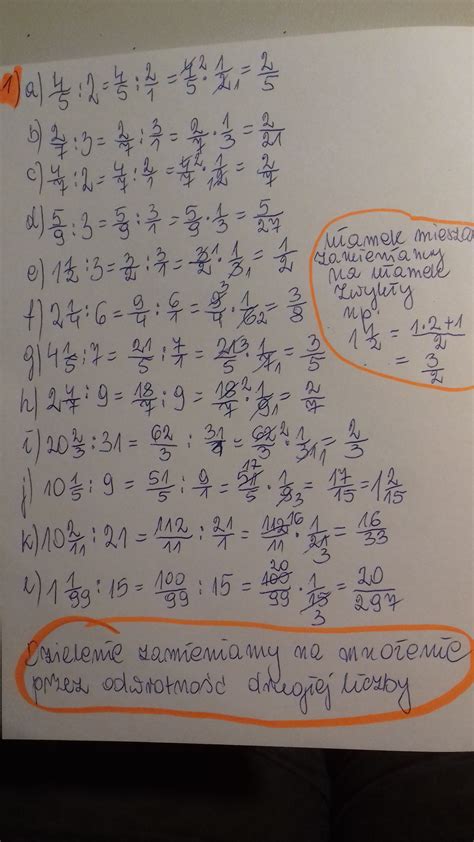 1) a) 4/5 : 2 = 4/5 : 2/1 = 4/5 2 · 1/2 1 = 2/5
b) 2/7 : 3 = 2/7 : 3/1 = 2/7 · 1/3 = 2/21
c) 4/7 : 2 = 4/7 : 2/1 = 4/7 2 · 1/2 1 = 2/7
d) 5/9 : 3 = 5/9 : 3/1 = 5/9 · 1/3 = 5/27
e) 1 1/2 : 3 = 3/2 : 3/1 = 3/2 1 · 1/3 1 = 1/2
f) 2 1/4 : 6 = 9/4 : 6/1 = 9/4 3 · 1/6 2 = 3/8
g) 4 1/5 : 7 = 21/5 : 7/1 = 21/5 3 · 1/7 1 = 3/5
h) 2 4/7 : 9 = 18/7 : 9 = 18/7 2 · 1/9 1 = 2/7
i) 20 2/3 : 31 = 62/3 : 31/1 = 62/3 2 · 1/31 1 = 2/3
j) 10 1/5 : 9 = 51/5 : 9/1 = 51/5 17 · 1/9 3 = 17/15 = 1 2/15
k) 10 2/11 : 21 = 112/11 : 21/1 = 112/11 16 · 1/21 3 = 16/33
l) 1 1/99 : 15 = 100/99 : 15 = 100/99 20 · 1/15 3 = 20/297
ułamek miesza
zamieniamy
na ułamek
zwykły
np.
1 1/2 = 1·2+1/2
= 3/2
Dzielenie zamieniamy na mnożenie
przez odwrotność drugiej liczby